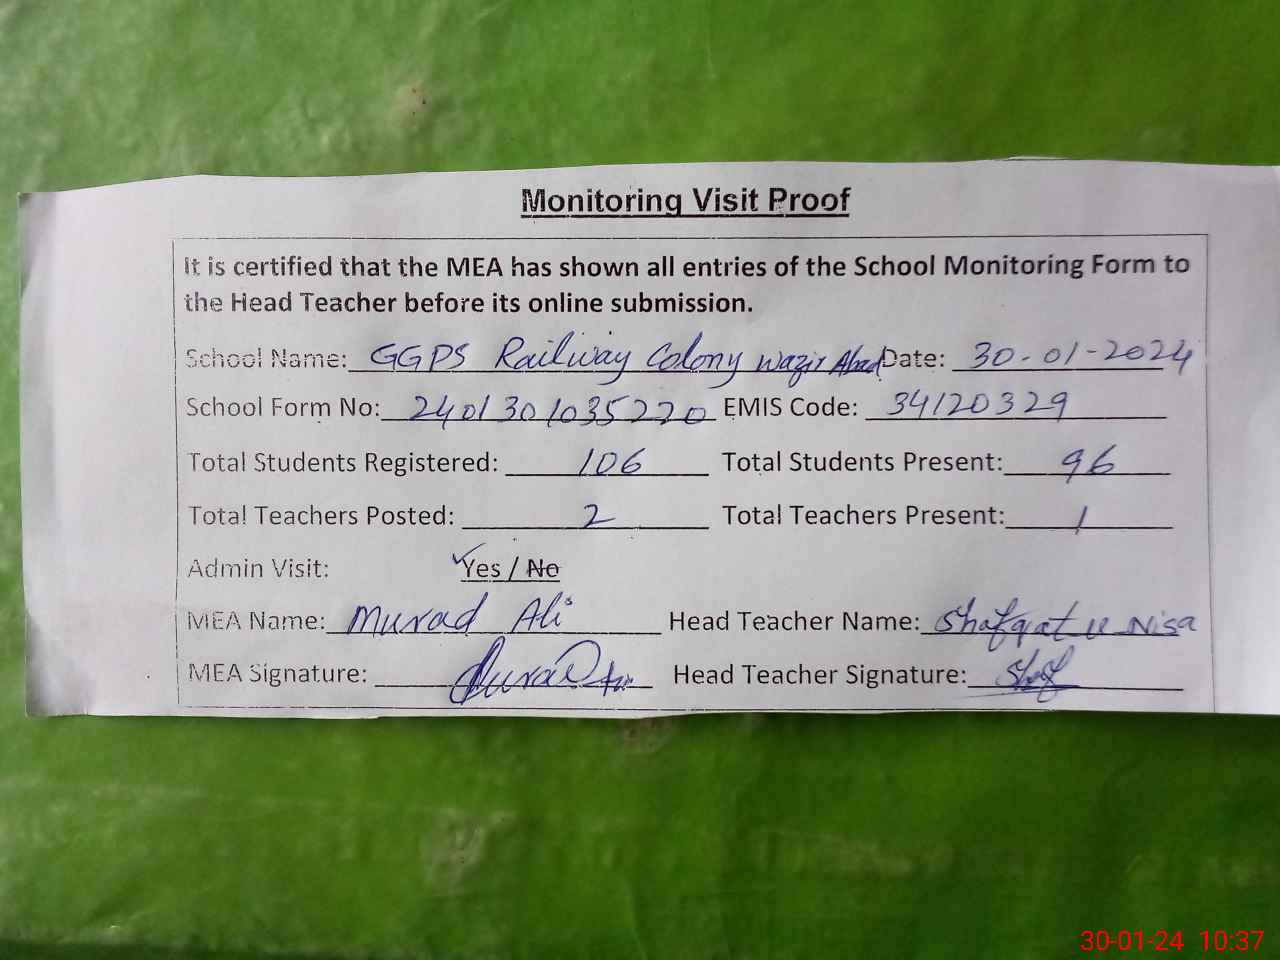 Monitoring Visit Proof
It is certified that the MEA has shown all entries of the School Monitoring Form to
the Head Teacher before its online submission.
School Name: GGPS Railway Colony Wazir Abad Date: 30-01-2024
School Form No: 2401301035220 EMIS Code: 34120329
Total Students Registered: 106 Total Students Present: 96
Total Teachers Posted: 2 Total Teachers Present: 1
Admin Visit: Yes / No
MEA Name: Murad Ali Head Teacher Name: Shafqat u Nisa
MEA Signature: Head Teacher Signature:
30-01-24 10:37